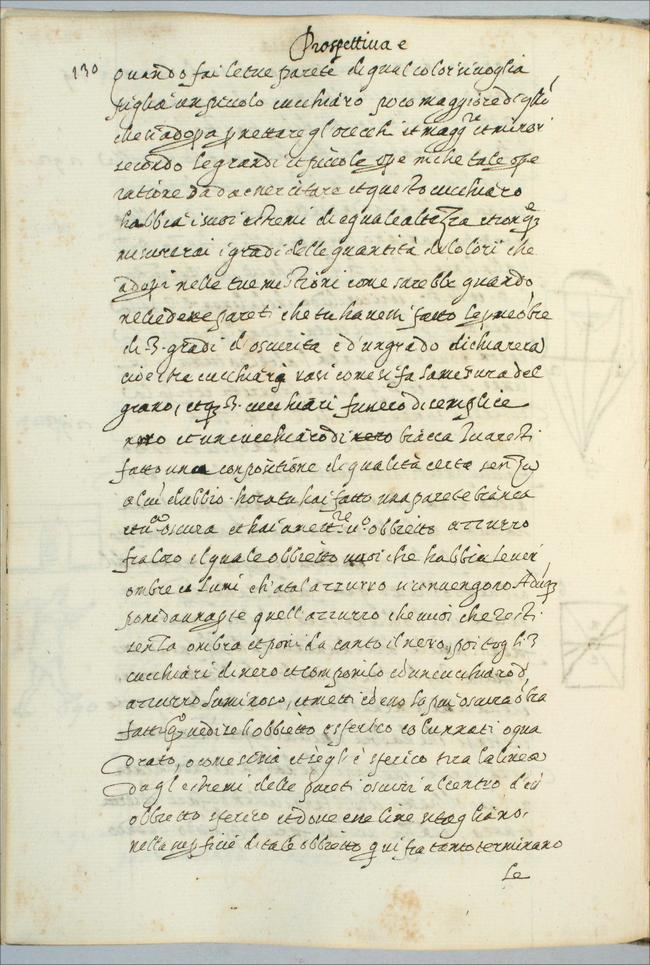 Prospettiua e
130
quando fai le tue parete di qual color si uoglia
piglia un picuolo cucchiaro poco maggiore di quello
che s'adopa p nettare gl'orecchi et magg.re et minori
secondo le grandi et piccole ope in che tale ope
ratione da da exercitare et questo cucchiaro
habbia i suoi estremi di eguale altezza et con q°
misurerai i gradi delle quantità de colori che
adopi nelle tue mistioni come sarebbe quando
nelle dette pareti che tu hauessi fatto le p.e ōbre
di 3. gradi d'oscurita e d'un grado di chiarezza
cioe tre cucchiari rasi come si fa la mesura del
grano, et q° 3. cucchiari fusseco di cemplice
nero et un cucchiaro di nero biacca tu aresti
fatto una conpositione di qualità certa senza
alcū dubbio. hora tu hai fatto una parete bianca
et un.a oscura et hai a mett.re u.o obbietto azzurro
fra loro il quale obbietto uuoi che habbia le uere
ombre e lumi ch'a tal azzurro si conuengono Aduq°
pone da una pte quell'azzurro che uuoi che resti
senza ombra et poni da canto il nero, poi togli 3
cucchiari di nero et componilo cō un cucchiaro d'
azzurro luminoso, et metti cō esso la piu oscura ōbra
fatto q° uedi se l'obbietto e sferico co lunnati o qua
drato, o come si sia et s'egli è sferico tira la linea
da gl'estremi delle pareti oscuri al centro d'esso
obbietto sferico et doue esse linee si tagliano
nella supficie di tale obbietto qui fra tanto terminano
le